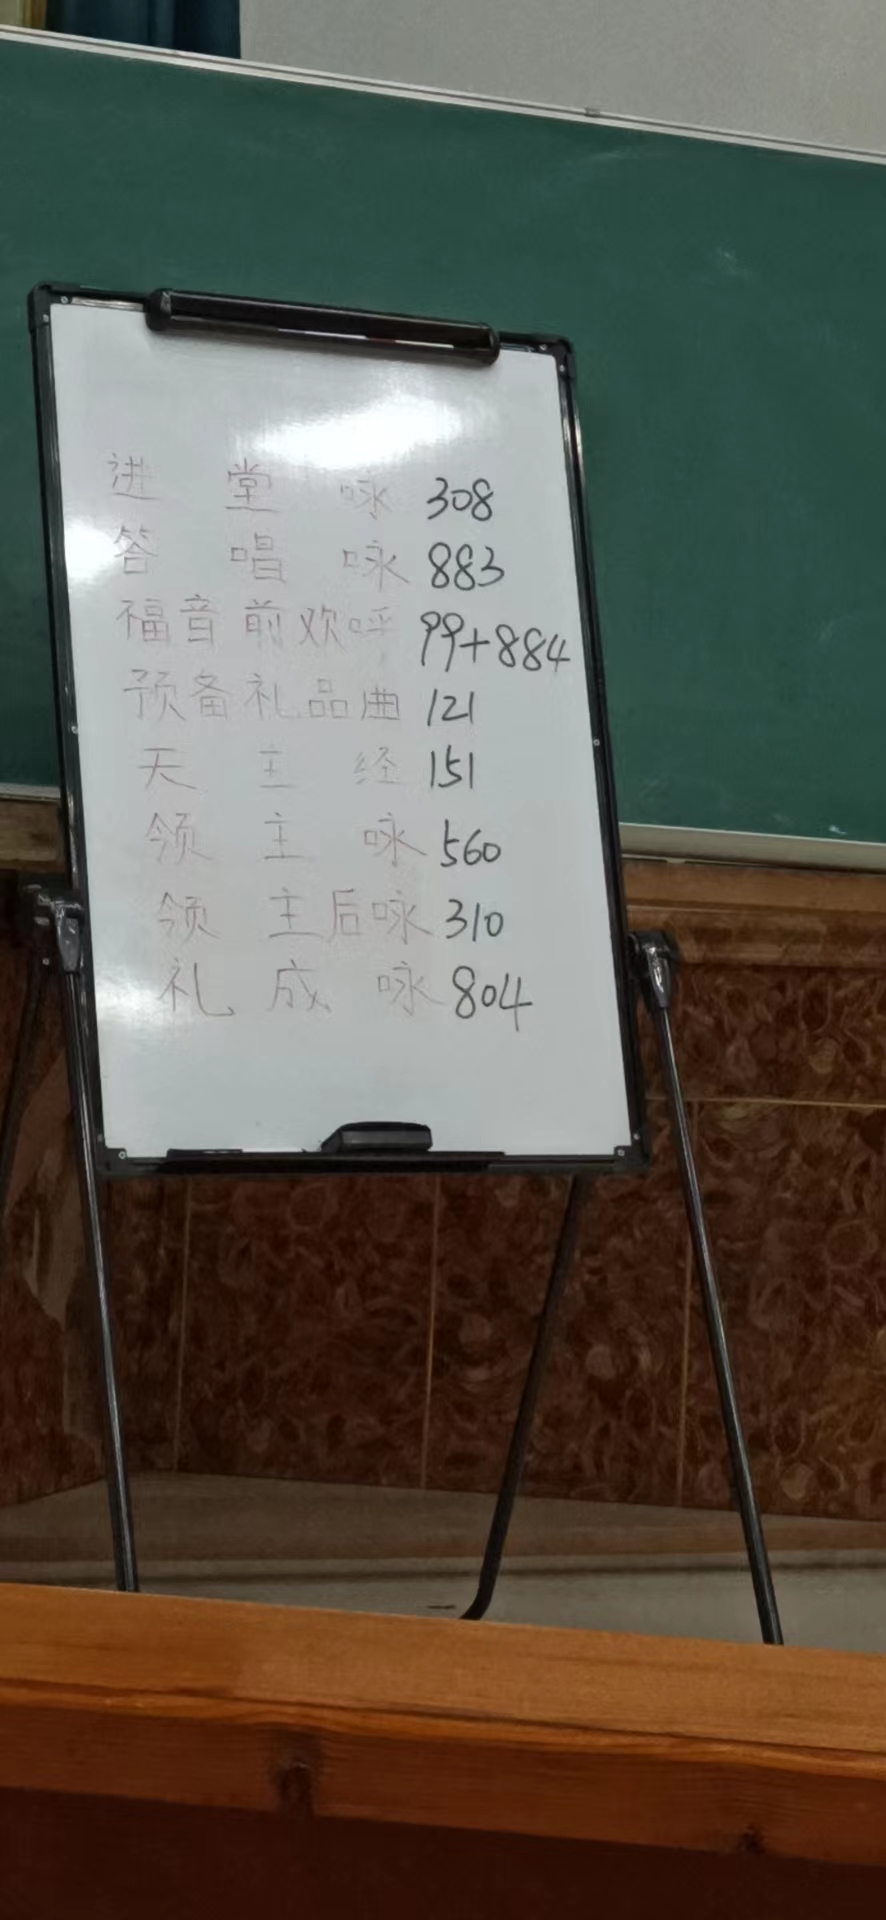 进堂咏 308
答唱咏 883
福音前欢呼 99+884
预备礼品曲 121
天主经 151
领主咏 560
领主后咏 310
礼成咏 804